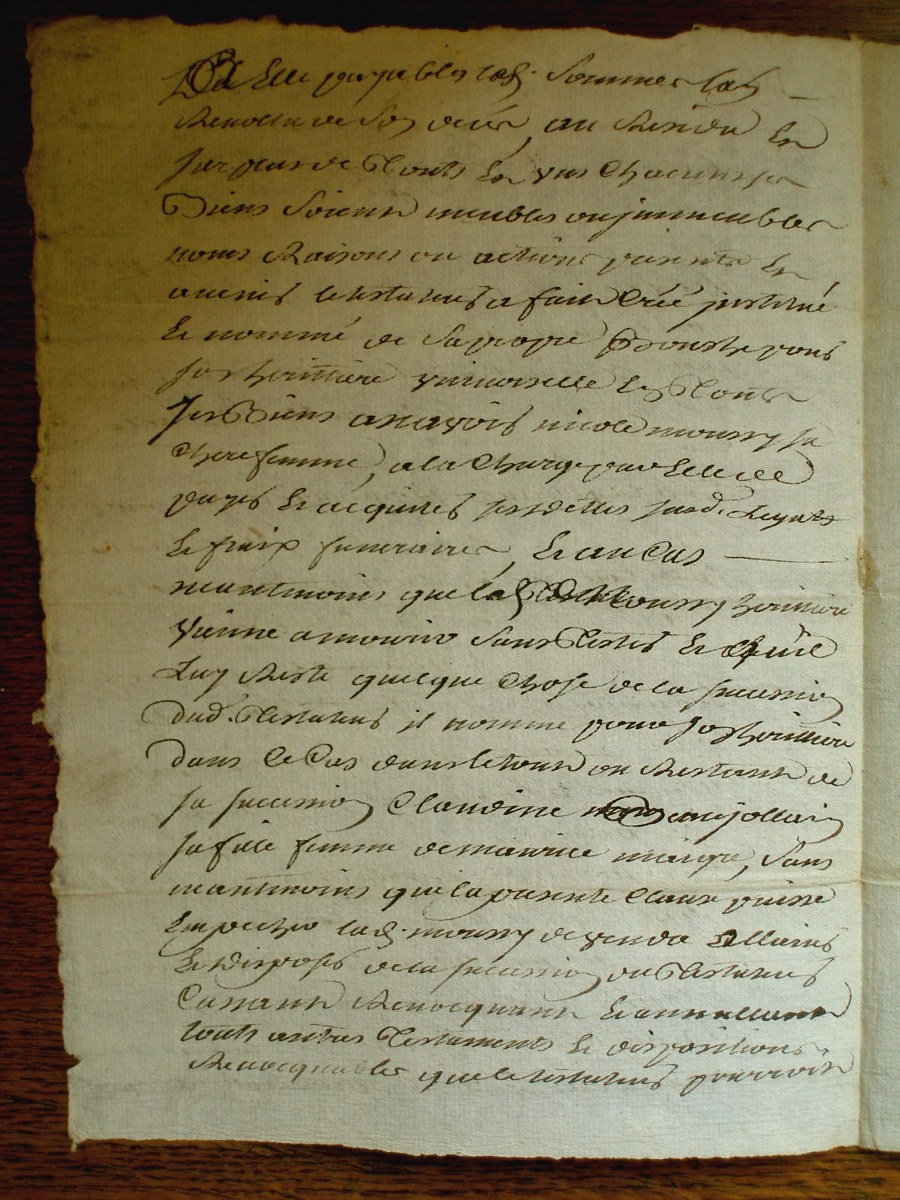 Elle payables lad. Somme lad.
Revolue de Son deces, au Residu Et
surplus de Touts Et uns Chacuns ses
Biens Soient meubles ou jmmeubles
noms Raisons ou actions presents Et
avenir le testateur a fait Créé jnstitué
Et nommé de Sa propre Bouche pour
son heritiere universelle En Touts
ses Biens a sçavoir nicole moussy sa
Chere femme, a la Charge par Elle de
payer Et acquitter ses dettes susd. Legats
Et fraix funeraires, Et au Cas
neantmoins que lad. moussy heritiere
Vienne a mourir Sans Tester Et Qu'il
Luy Reste quelque Chose de la succession
dud. Testateur il nomme pour son heritiere
dans Ce Cas dans le tout ou Restant de
sa succession Claudine
sa fille femme de maurice maigre, Sans
neantmoins que la presente Clause puisse
Empecher lad. moussy de vendre Alliener
Et Disposer de la succession du Testateur
Cassant Revocquant Et annullant
touts autres Testaments Et dispositions
Revocquables que le testateur pourroit